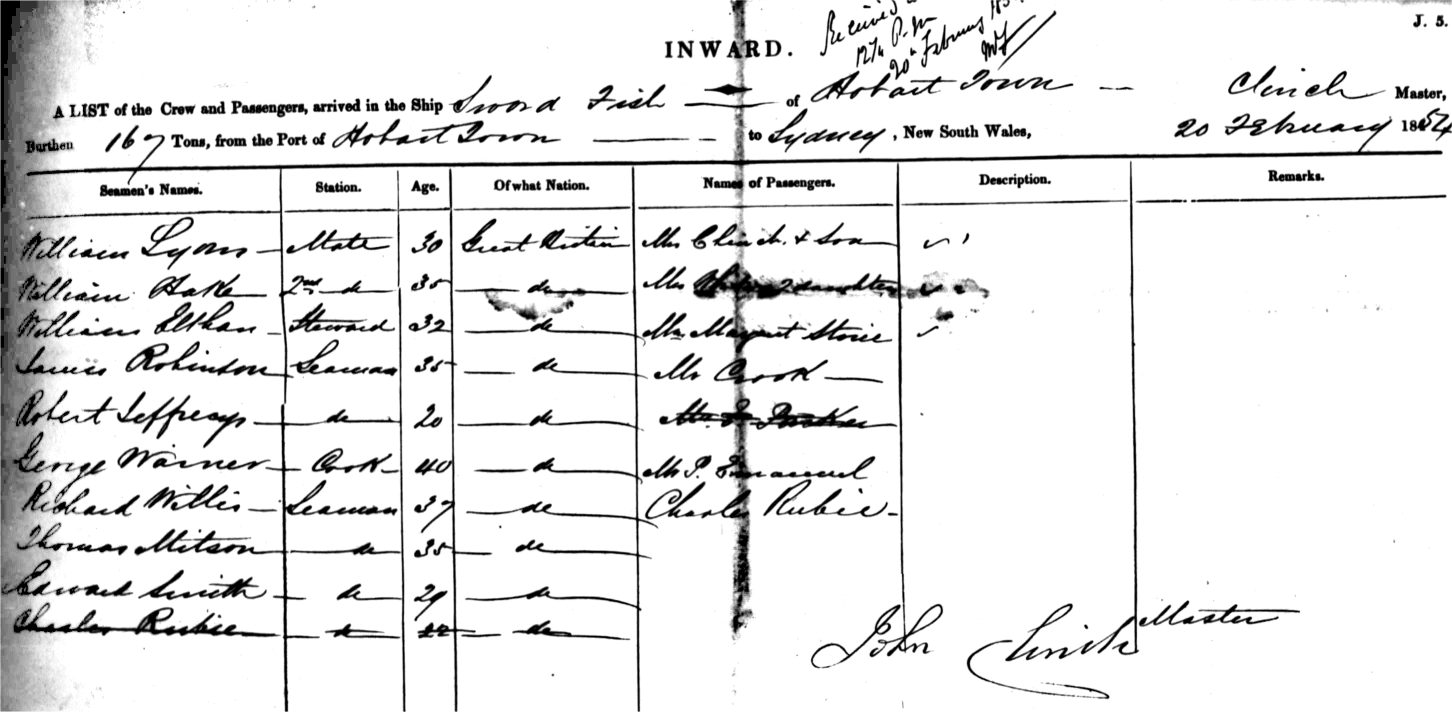 J. 5.
Received
12/4 P.M
20th February 185
INWARD.
A LIST of the Crew and Passengers, arrived in the Ship Sword Fish of Hobart Town Clinch Master,
Burthen 167 Tons, from the Port of Hobart Town to Sydney, New South Wales, 20 February 1854
Seamen's Names. Station. Age. Of what Nation. Names of Passengers. Description. Remarks.
William Lyons Mate 30 Great Britain Mrs Clinch & Son
William Hake 2nd do 35 do Mrs 2 daughters
William Elthan Steward 32 do Margaret Storie
James Robinson Seaman 35 do Mr Crook
Robert Jeffreys do 20 do
George Warner Cook 40 do Mr P. Emanuel
Richard Willis Seaman 37 do Charles Rubie
Thomas Mitson do 35 do
Edward Smith do 29 do
Charles Rubie do 22 do
John Clinch Master